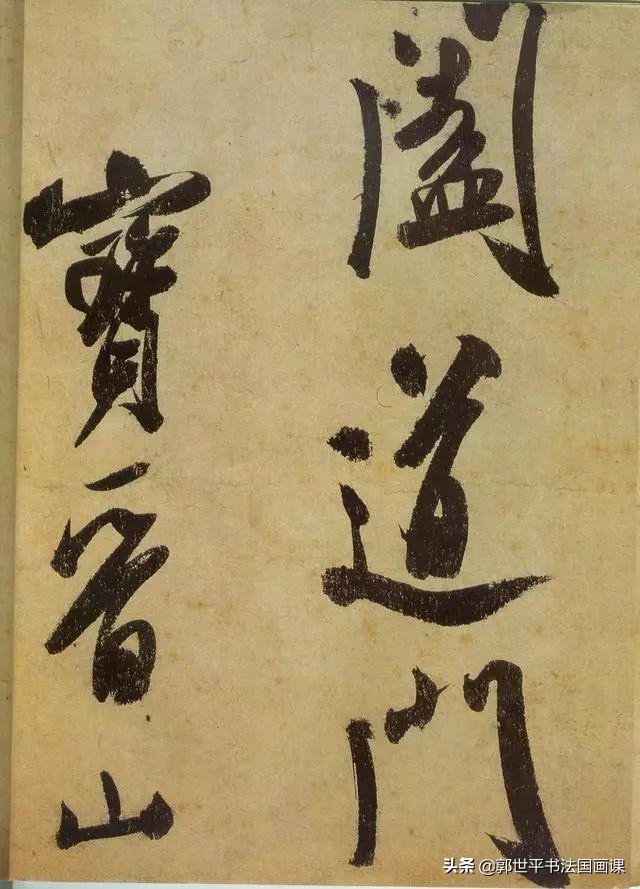 闔道門
寶晉山
头条 @郭世平书法国画课